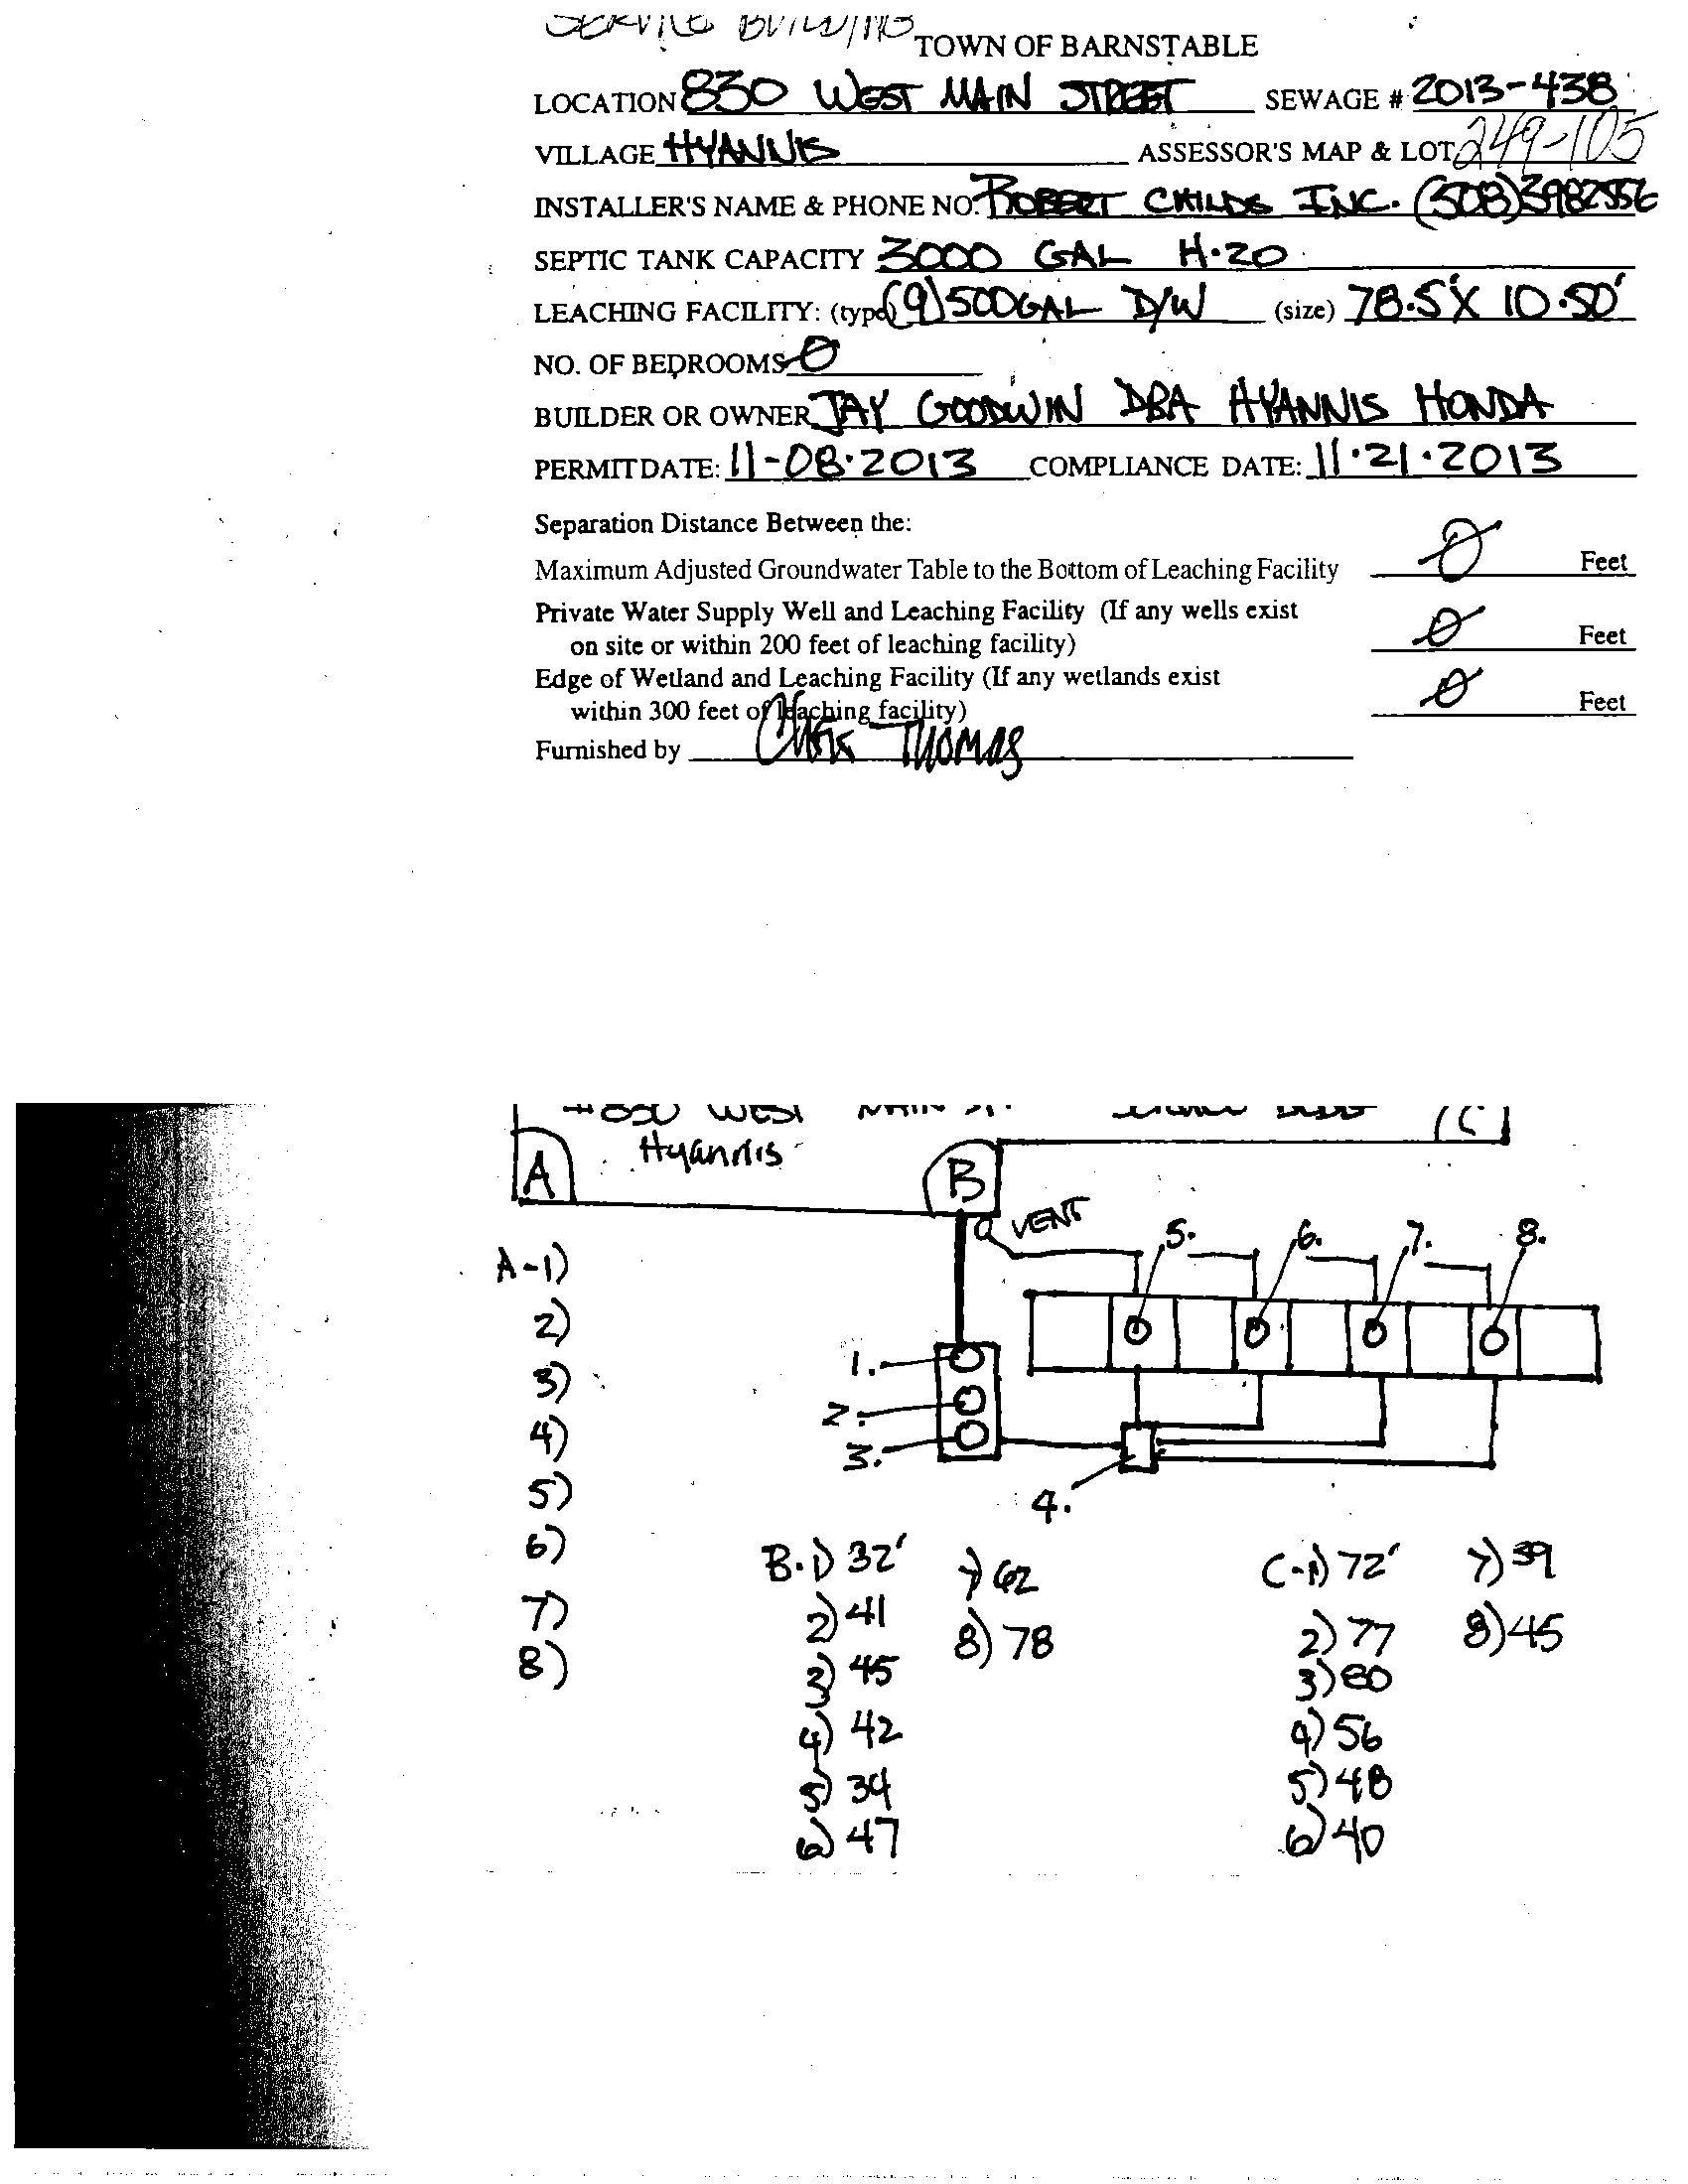 SERVICE BUILDING
TOWN OF BARNSTABLE
LOCATION 830 WEST MAIN STREET SEWAGE # 2013-438
VILLAGE HYANNIS ASSESSOR'S MAP & LOT 249-105
INSTALLER'S NAME & PHONE NO. ROBERT CHILDS INC. (508)3982556
SEPTIC TANK CAPACITY 3000 GAL H-20
LEACHING FACILITY: (type) (9) 500GAL D/W (size) 78.5' X 10.50'
NO. OF BEDROOMS 0
BUILDER OR OWNER JAY GOODWIN DBA HYANNIS HONDA
PERMITDATE: 11-08-2013 COMPLIANCE DATE: 11-21-2013
Separation Distance Between the:
Maximum Adjusted Groundwater Table to the Bottom of Leaching Facility 0 Feet
Private Water Supply Well and Leaching Facility (If any wells exist
on site or within 200 feet of leaching facility) 0 Feet
Edge of Wetland and Leaching Facility (If any wetlands exist
within 300 feet of leaching facility) 0 Feet
Furnished by Chris Thomas
#830 WEST MAIN ST. (C)
Hyannis
A B
VENT
5. 6. 7. 8.
A-1)
2)
1.
3)
2.
4)
3.
5)
4.
6)
7)
8)
B-1) 32' 7) 62 C-1) 72' 7) 39
2) 41 8) 78 2) 77 8) 45
3) 45 3) 80
4) 42 4) 56
5) 34 5) 48
6) 47 6) 40